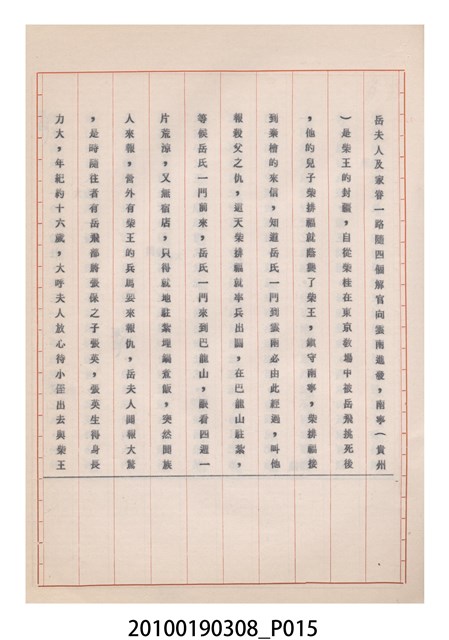 岳夫人及家眷一路隨四個解官向雲南進發，南寧（貴州
）是柴王的封疆，自從柴桂在東京教場中被岳飛挑死後
，他的兒子柴排福就蔭襲了柴王，鎮守南寧，柴排福接
到秦檜的來信，知道岳氏一門到雲南必由此經過，叫他
報殺父之仇，這天柴排福就率兵出關，在巴龍山駐紮，
等候岳氏一門前來，岳氏一門來到巴龍山，眼看四週一
片荒涼，又無宿店，只得就地駐紮埋鍋煮飯，突然聞族
人來報，營外有柴王的兵馬要來報仇，岳夫人聞報大驚
，是時隨往者有岳飛部將張保之子張英，張英生得身長
力大，年紀約十六歲，大呼夫人放心待小侄出去與柴王
20100190308_P015